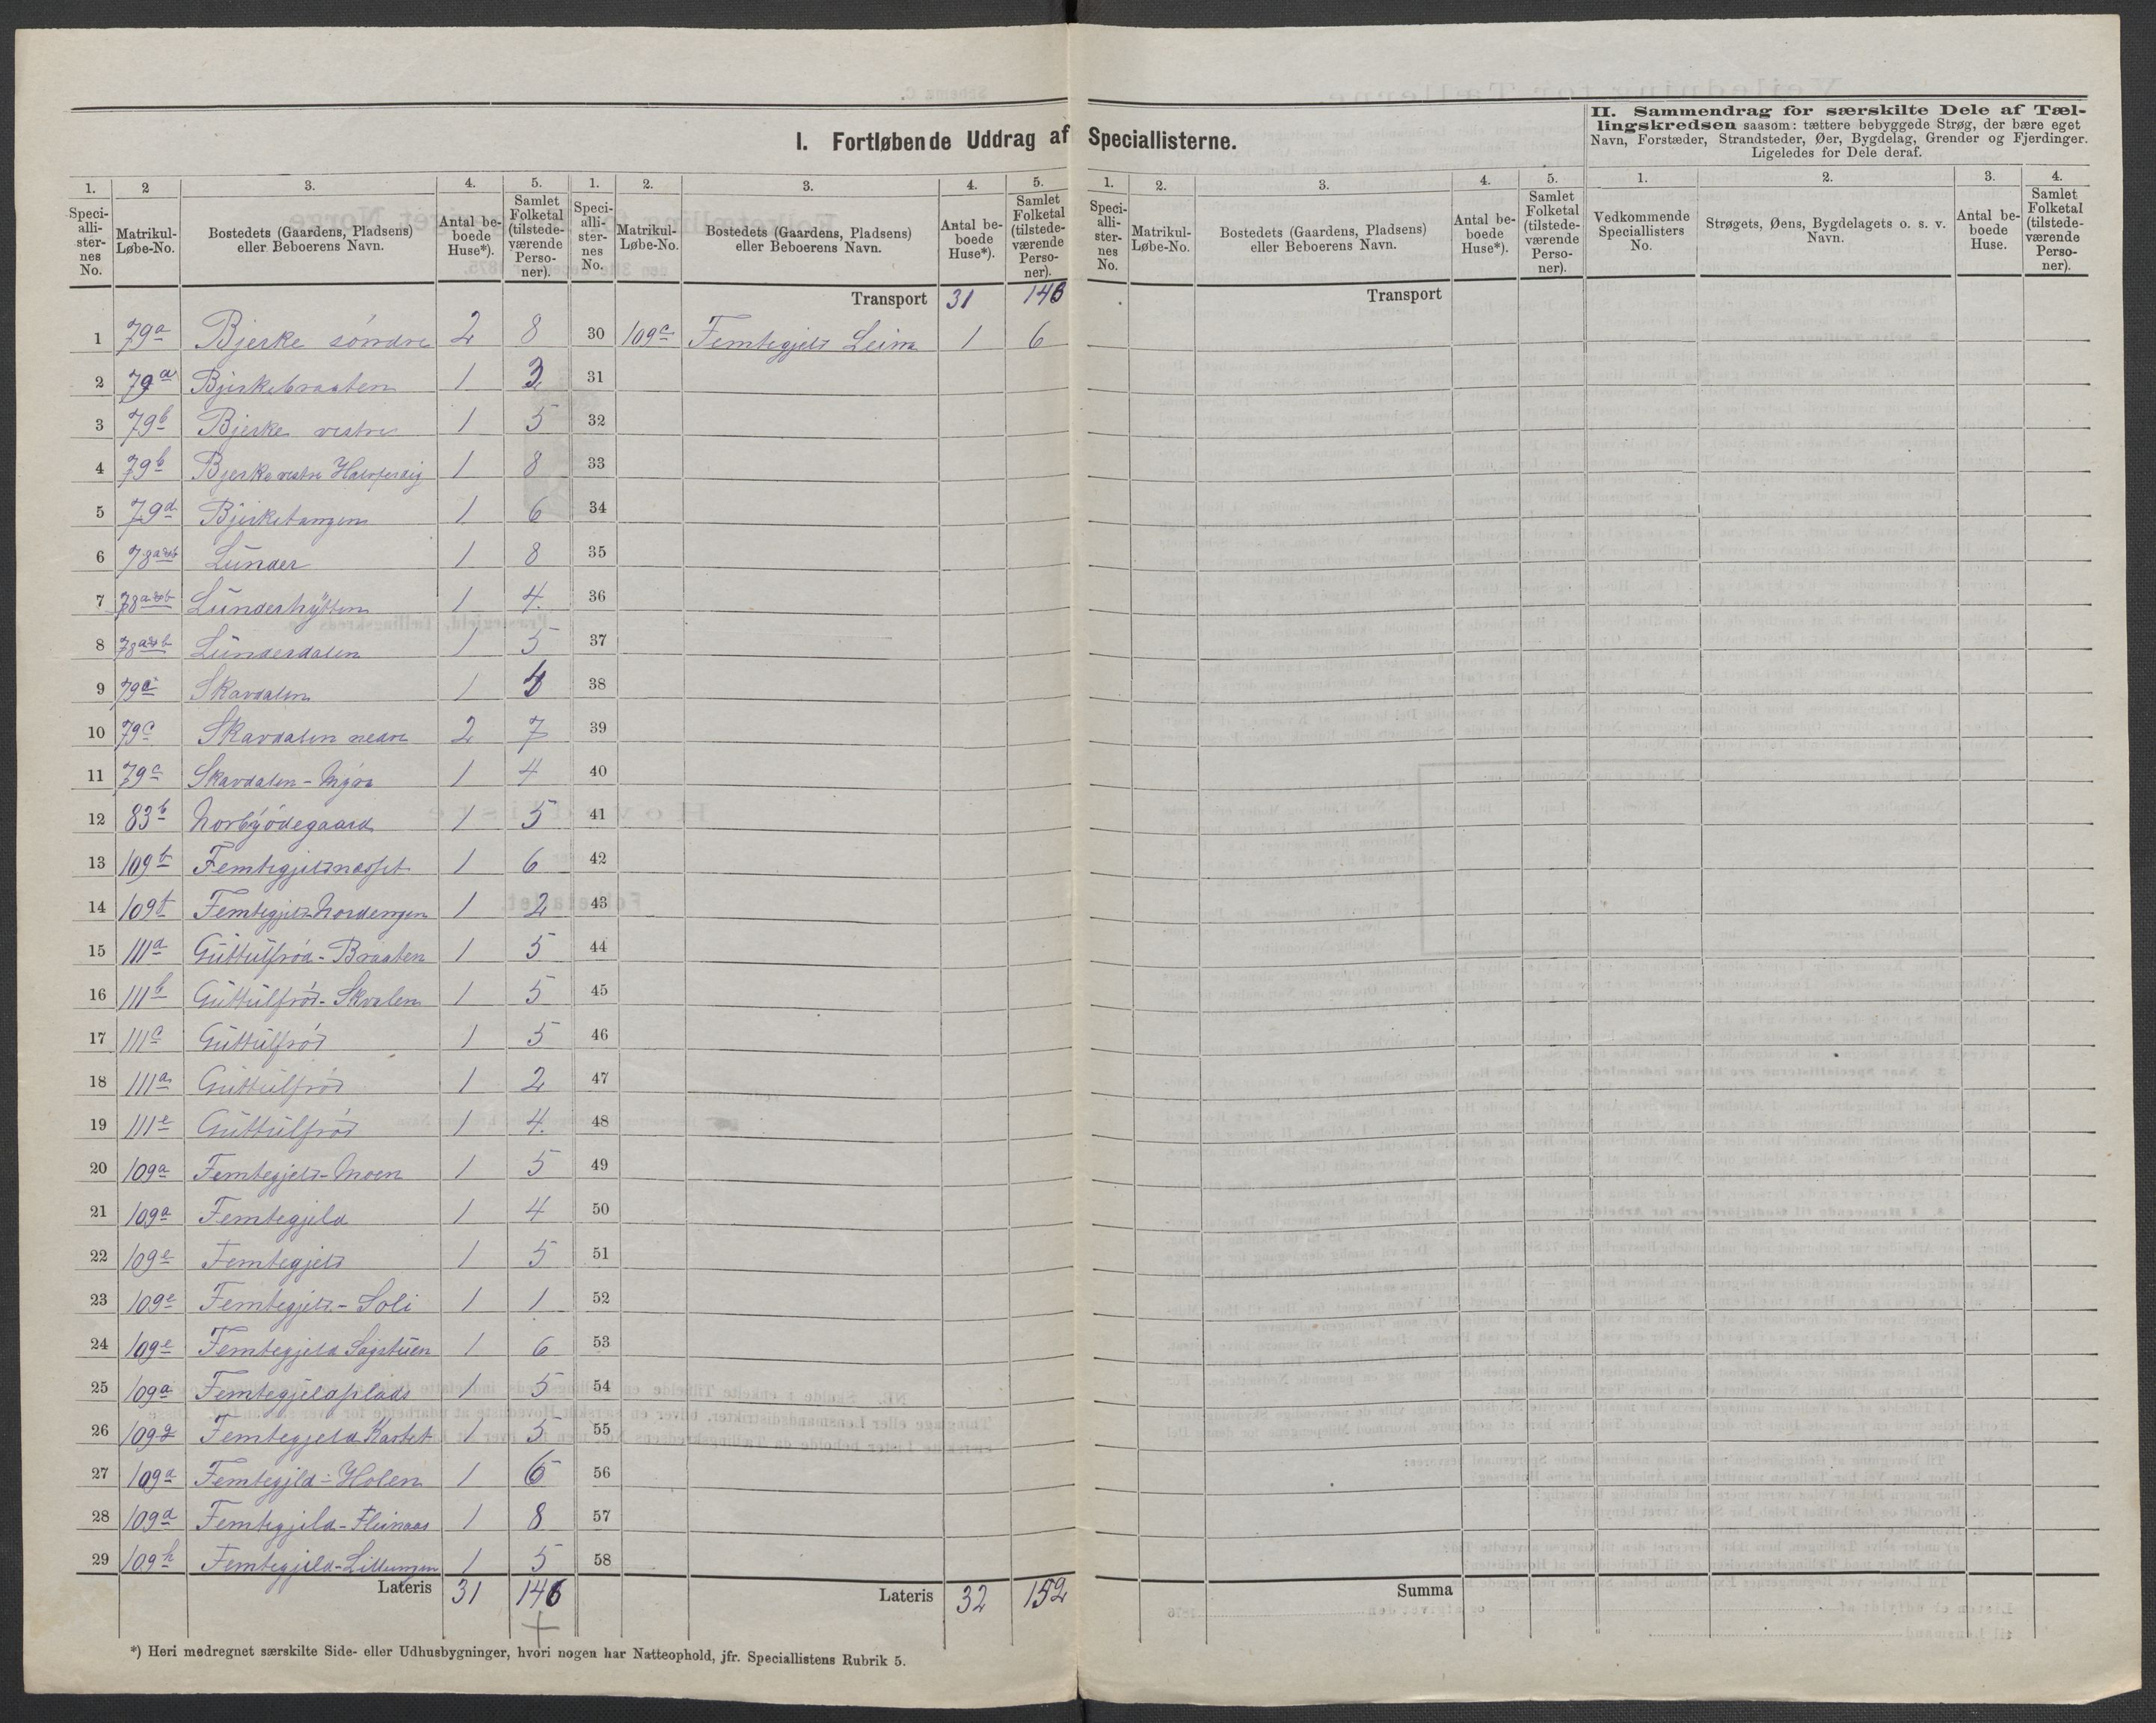 I. Fortløbende Uddrag af Speciallisterne.
II. Sammendrag for særskilte Dele af Tæl-
lingskredsen saasom: tættere bebyggede Strøg, der bære eget
Navn, Forstæder, Strandsteder, Øer, Bygdelag, Grender og Fjerdinger.
Ligeledes for Dele deraf.
1. 2 3. 4. 5. 1. 2. 3. 4. 5. 1. 2. 3. 4. 5. 1. 2. 3. 4.
Speci-alli-ster-nes No. Matrikul-Løbe-No. Bostedets (Gaardens, Pladsens) eller Beboerens Navn. Antal be-boede Huse*). Samlet Folketal (tilstede-værende Perso-ner).
Speci-alli-ster-nes No. Matrikul-Løbe-No. Bostedets (Gaardens, Pladsens) eller Beboerens Navn. Antal be-boede Huse*). Samlet Folketal (tilstede-værende Perso-ner).
Speci-alli-ster-nes No. Matrikul-Løbe-No. Bostedets (Gaardens, Pladsens) eller Beboerens Navn. Antal be-boede Huse*). Samlet Folketal (tilstede-værende Perso-ner).
Vedkommende Speciallisters No. Strøgets, Øens, Bygdelagets o. s. v. Navn. Antal be-boede Huse. Samlet Folketal (tilstede-værende Perso-ner).
Transport 31 146 Transport
1 79a Bjerke söndre 2 8 30 109c Femtegjeld Leira 1 6
2 79a Bjerkebraaten 1 3 31
3 79b Bjerke vestre 1 5 32
4 79b Bjerke vestre 1 8 33
5 79d Bjerketangen 1 6 34
6 78a&b Lunder 1 8 35
7 78a&b Lunderhytten 1 4 36
8 78a&b Lunderdalen 1 5 37
9 79c Skavdalen 1 4 38
10 79c Skavdalen nedre 2 7 39
11 79c Skavdalen-Myra 1 4 40
12 83b Norbyödegaard 1 5 41
13 109b Femtegjeldnæsset 1 6 42
14 109b Femtegjeld Nordengen 1 2 43
15 111a Guttulfröd-Braaten 1 5 44
16 111b Guttulfröd-Skvalen 1 5 45
17 111c Guttulfröd 1 5 46
18 111a Guttulfröd 1 2 47
19 111e Guttulfröd 1 4 48
20 109a Femtegjeld-Moen 1 5 49
21 109a Femtegjeld 1 4 50
22 109e Femtegjeld 1 5 51
23 109e Femtegjeld-Soli 1 1 52
24 109e Femtegjeld Sagstuen 1 6 53
25 109a Femtegjeldplads 1 5 54
26 109 Femtegjeld 1 5 55
27 109a Femtegjld-Holen 1 6 56
28 109d Femtegjeld- 1 8 57
29 109h Femtegjeld-Lillengen 1 5 58
Lateris 31 146 Lateris 32 152 Summa
*) Heri medregnet særskilte Side- eller Udhusbygninger, hvori nogen har Natteophold, jfr. Speciallistens Rubrik 5.